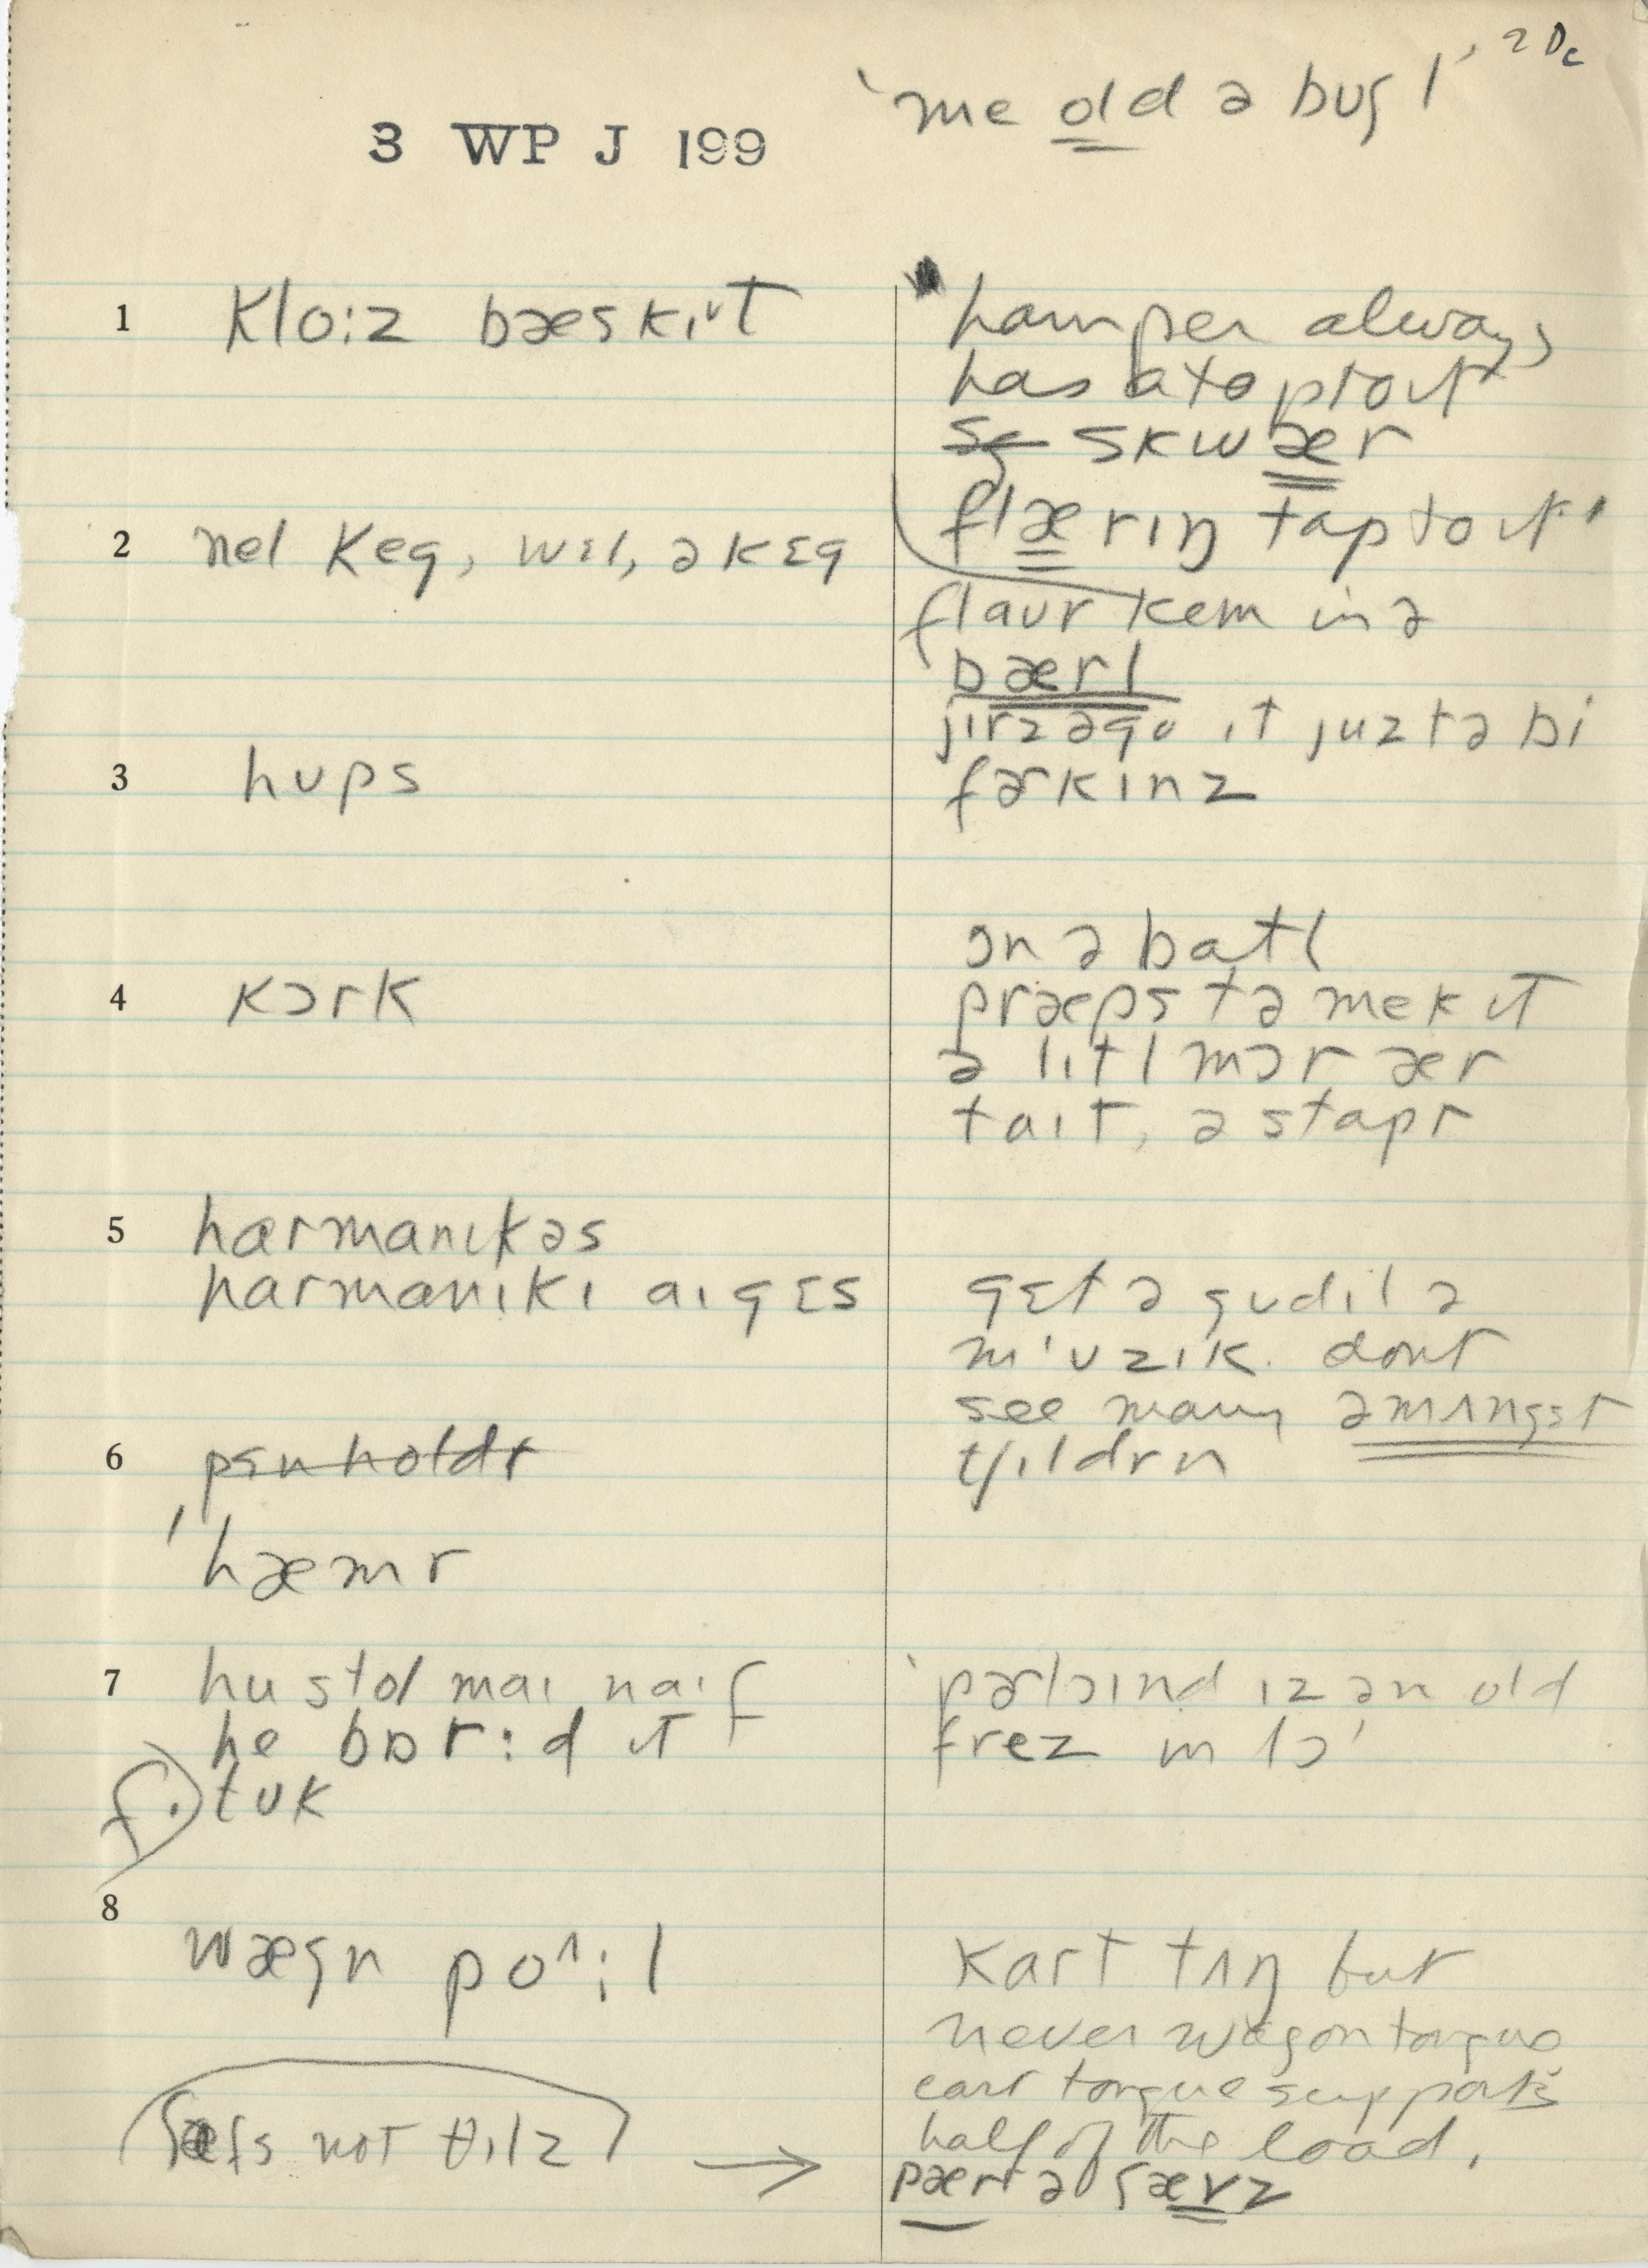 'me old ə bʊgl' 2 Dc
3 WP J 199
1 klo:z bæskɪt
hamper always
has a top to it
skwær
flærɪŋ tap to it'
2 nel keg, wɛl, ə kɛg
flaʊr kem in ə
bærl
jɪrz əgo ɪt juz tə bi
3 hʊps
fɚkɪnz
4 kɔrk
ɔn ə batl
præps tə mek ɪt
ə lɪtl mɔr ær
taɪt, ə stapr
5 harmanɪkəs
harmanɪkɪ aɪ gɛs
gɛt ə gʊd ɪl ə
mɪʊzɪk. dont
see many əmʌngst
tʃɪldrn
6 pɛn holdr
hæmr
7 hu stol maɪ naɪf
he bɒr:d ɪt
f. tʊk
'pɚlɔɪnd ɪz ən old
frez in lɔ'
8
wægn po^:l
kart tʌŋ but
never wagon tongue
cart tongue supports
half of the load.
not θɪlz →
pær ə ʃævz